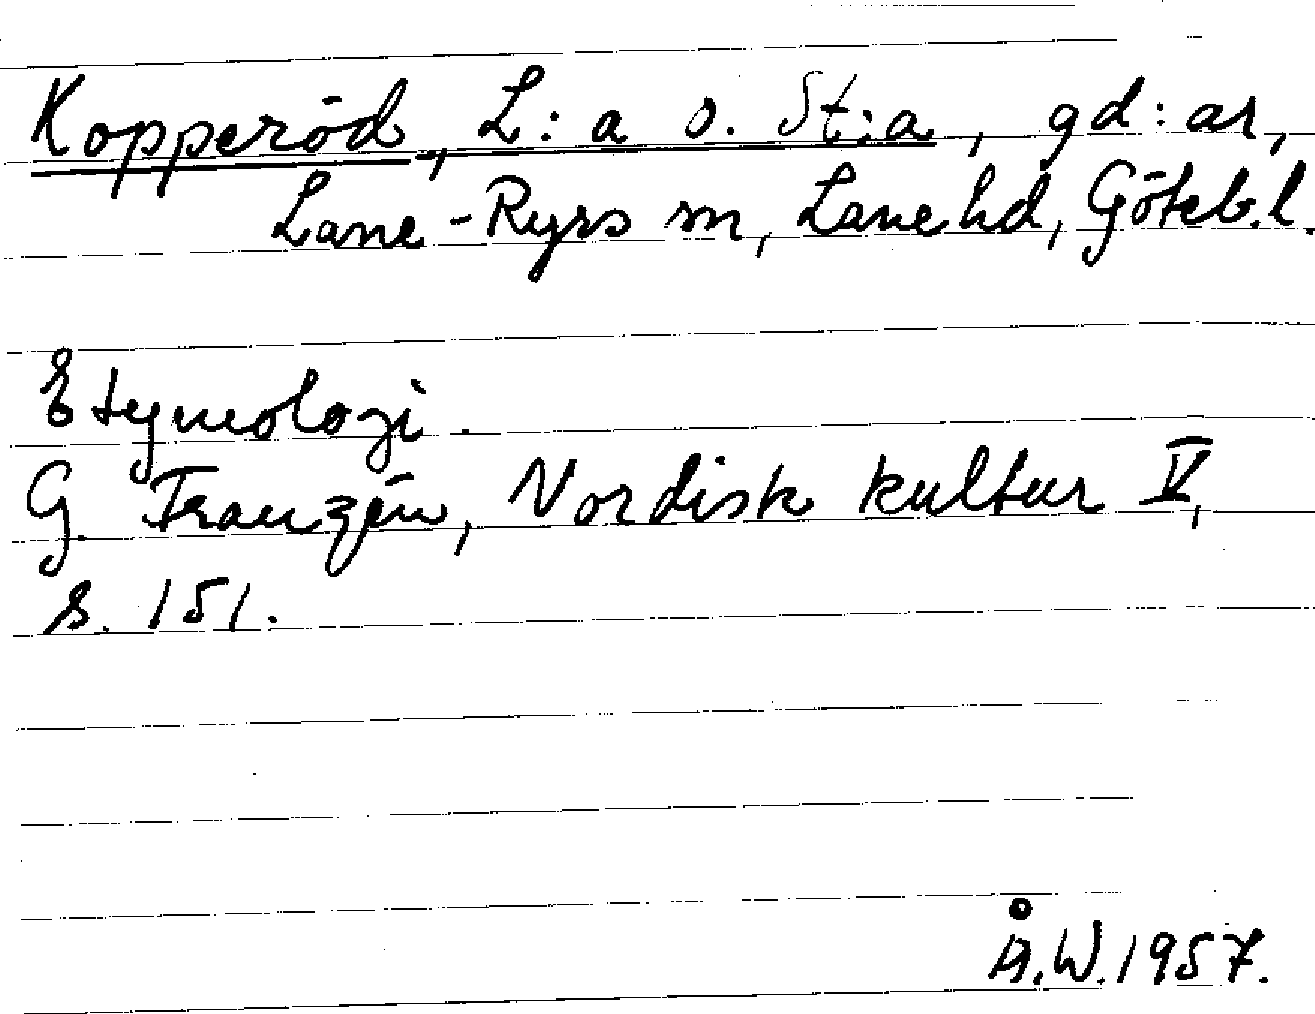 Kopperöd, L:a o. St:a, gd:ar,
Lane-Ryrs sn, Lane hd, Göteb.l.
Etymologi.
G. Franzén, Nordisk kultur V,
s. 151.
Å.W.1957.